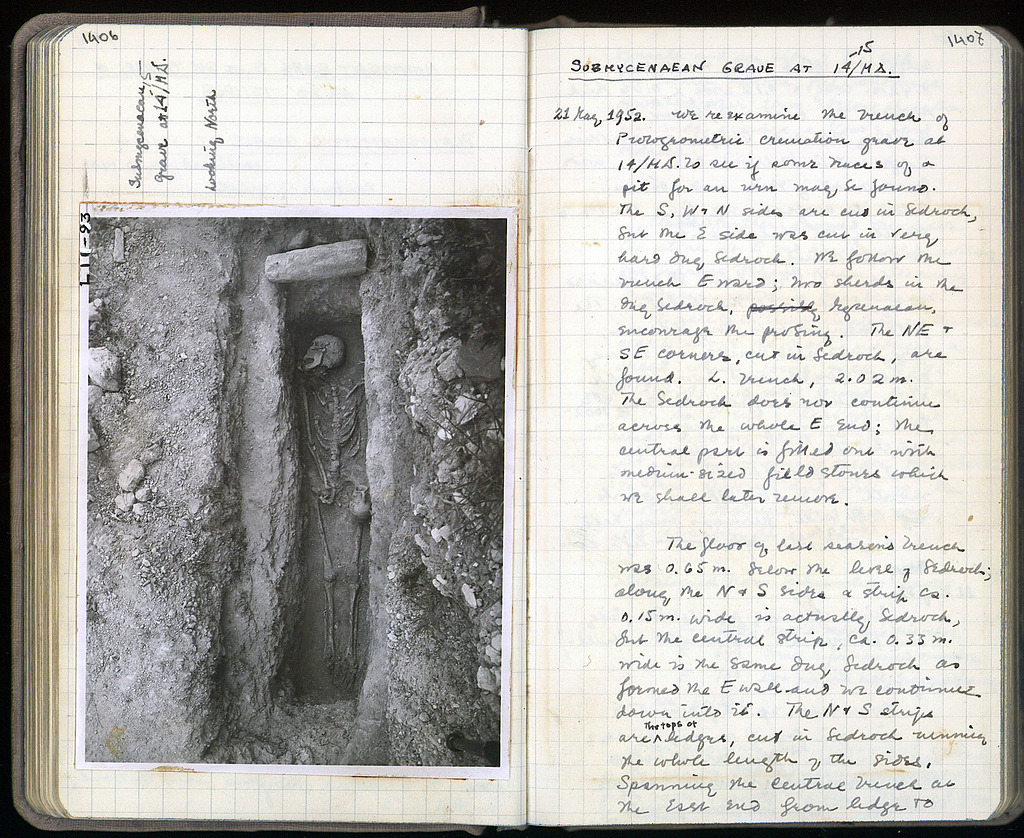 1406
Submycenaean
grave at 14/ΗΔ.
15
looking North
LII-93
1407
SUBMYCENAEAN GRAVE AT 14/ΗΔ.
15
21 May, 1952. We reexamine the trench of
Protogeometric cremation grave at
14/ΗΔ. to see if some traces of a
pit for an urn may be found.
The S, W + N sides are cut in bedrock,
but the E side was cut in very
hard dug bedrock. We follow the
trench Eward; two sherds in the
dug bedrock, possibly Mycenaean,
encourage the probing. The NE +
SE corners, cut in bedrock, are
found. L. trench, 2.02 m.
The bedrock does not continue
across the whole E end; the
central part is filled out with
medium-sized field stones which
we shall later remove.
The floor of last season's trench
was 0.65 m. below the level of bedrock;
along the N + S sides a strip ca.
0.15 m. wide is actually bedrock,
but the central strip, ca. 0.33 m.
wide is the same dug bedrock as
formed the E wall and we continue
down into it. The N + S strips
The tops of
are ^ ledges, cut in bedrock running
the whole length of the sides.
Spanning the central trench at
the East end from ledge to